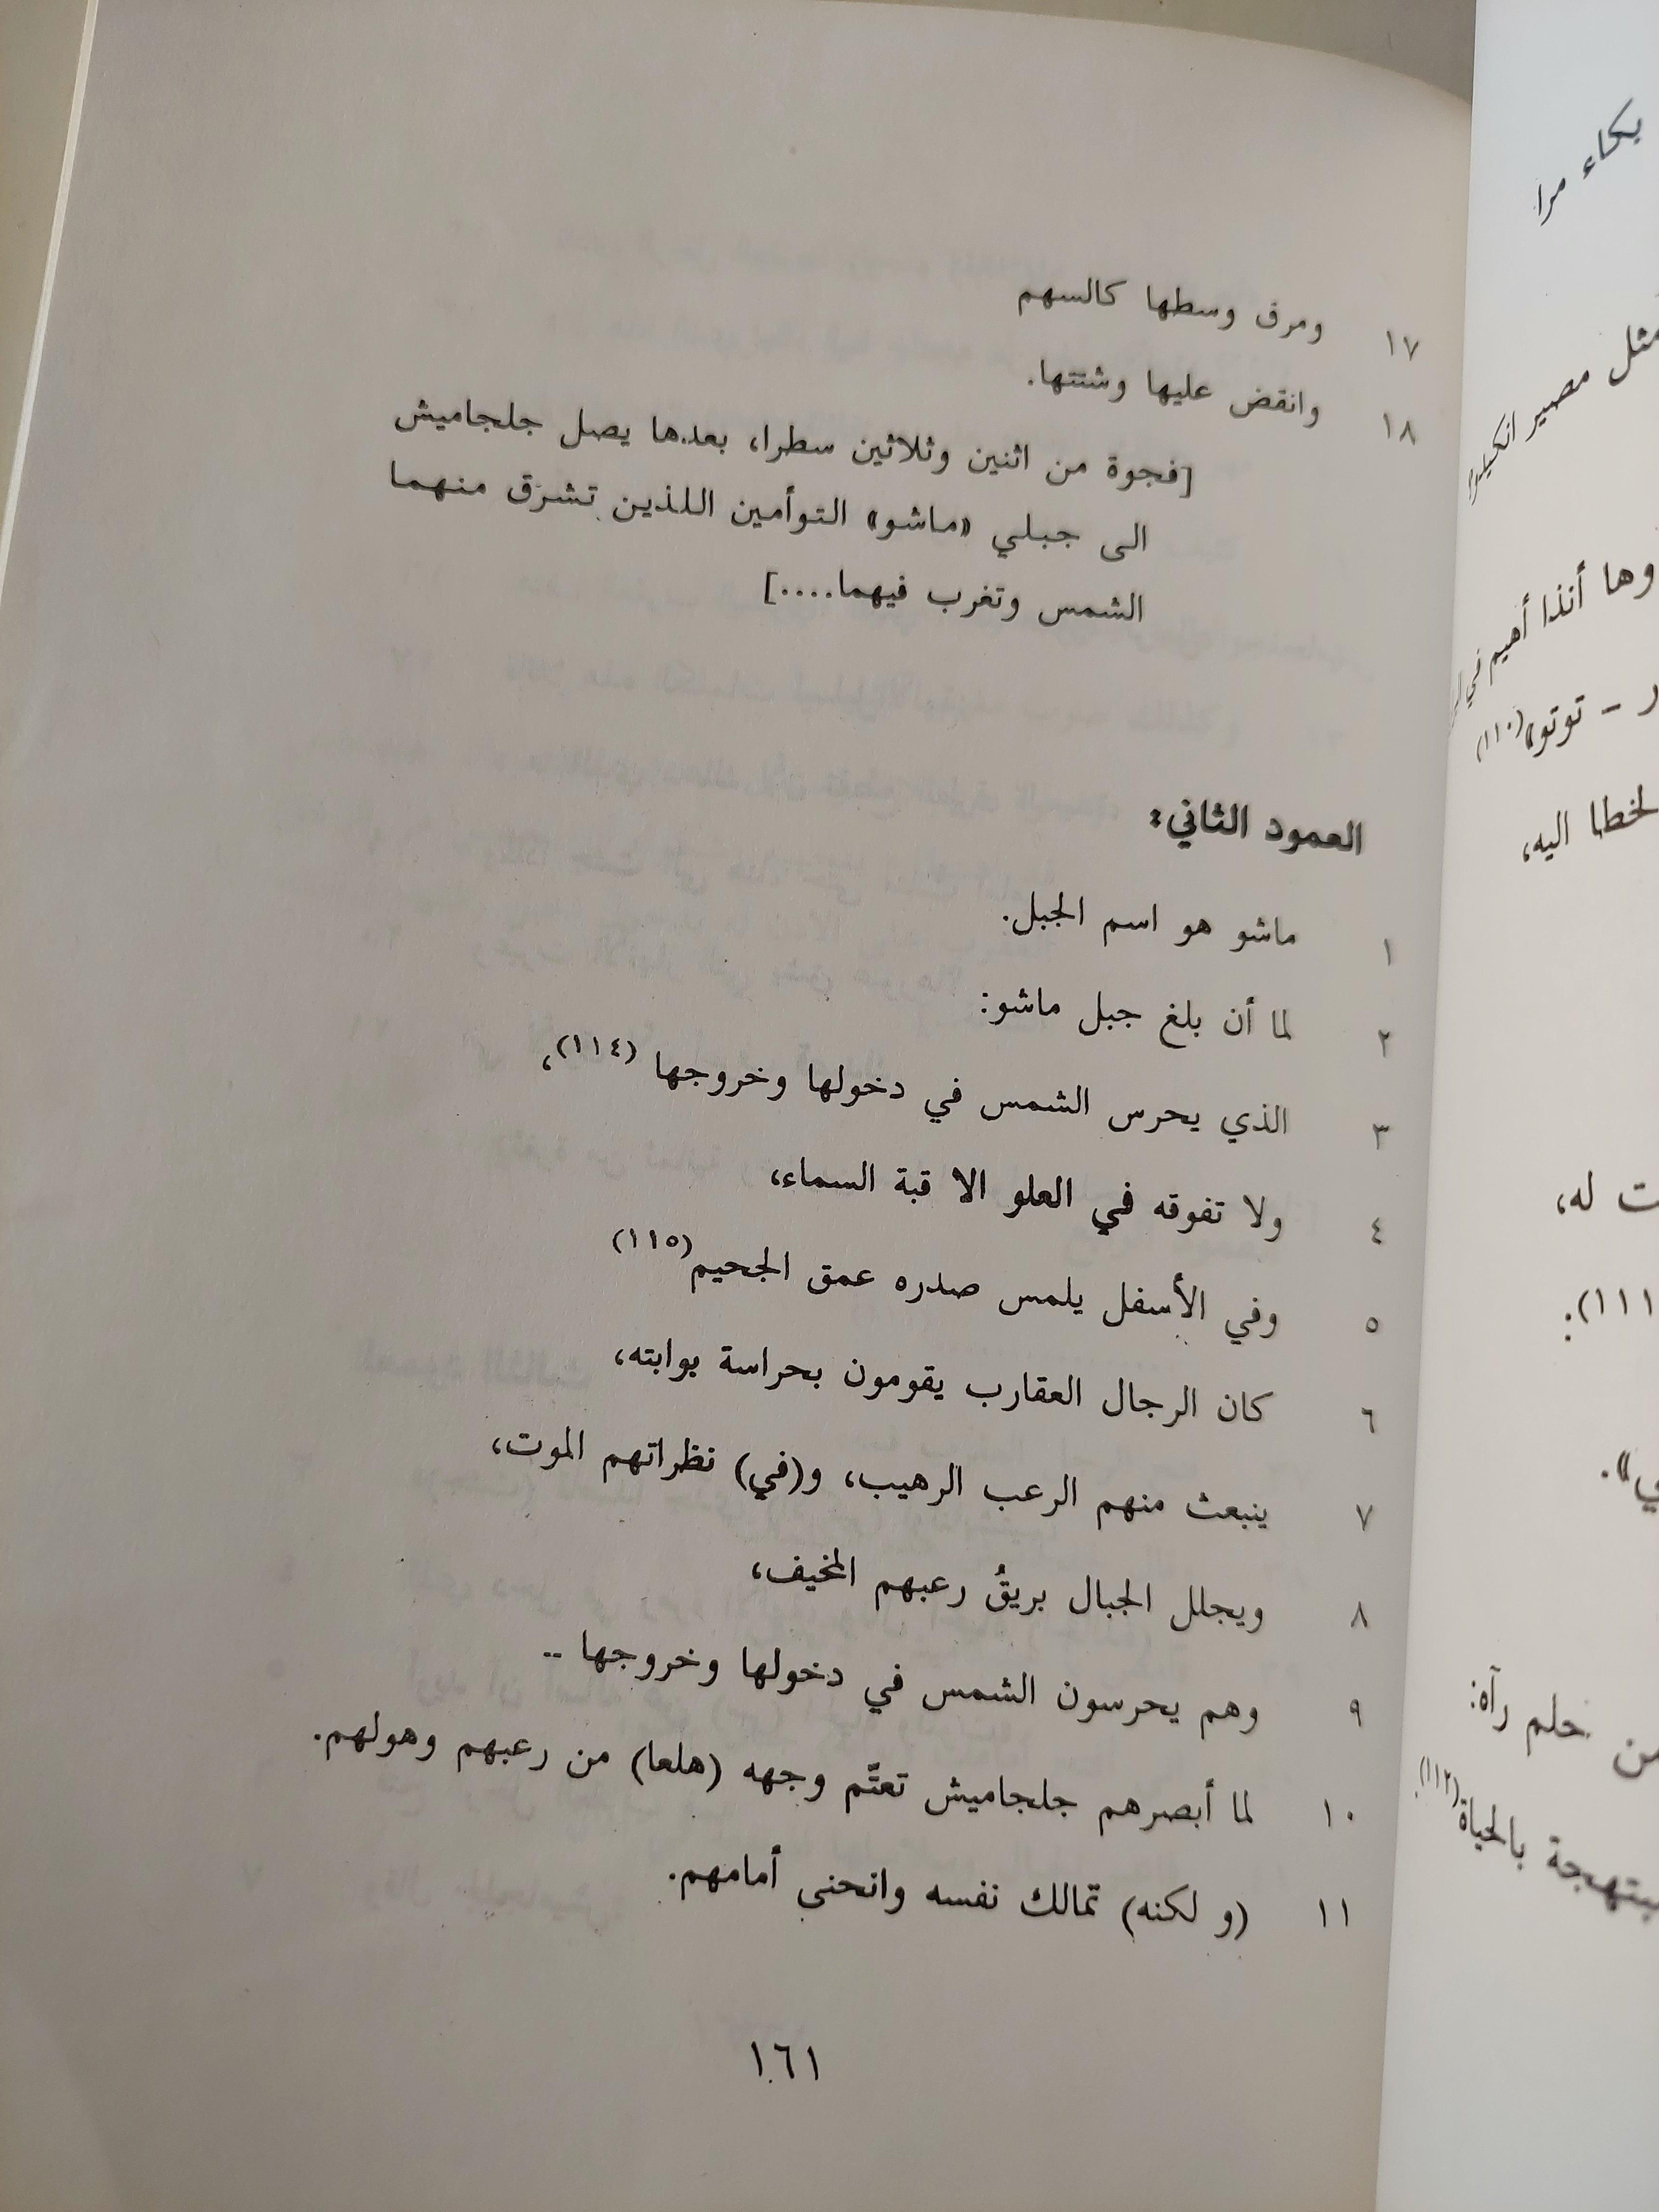 ١٧ ومرق وسطها كالسهم
١٨ وانقض عليها وشتتها.
[فجوة من اثنين وثلاثين سطرا، بعدها يصل جلجاميش
الى جبلي «ماشو» التوأمين اللذين تشرق منهما
الشمس وتغرب فيهما....]
العمود الثاني:
١ ماشو هو اسم الجبل.
٢ لما أن بلغ جبل ماشو:
٣ الذي يحرس الشمس في دخولها وخروجها (١١٤)،
٤ ولا تفوقه في العلو الا قبة السماء،
٥ وفي الأسفل يلمس صدره عمق الجحيم(١١٥)
٦ كان الرجال العقارب يقومون بحراسة بوابته،
٧ ينبعث منهم الرعب الرهيب، و(في) نظراتهم الموت،
٨ ويجلل الجبال بريقُ رعبهم المخيف،
٩ وهم يحرسون الشمس في دخولها وخروجها ..
١٠ لما أبصرهم جلجاميش تعتّم وجهه (هلعا) من رعبهم وهولهم.
١١ (و لكنه) تمالك نفسه وانحنى أمامهم.
١٦١
بكاء مرا
مثل مصير انكيدو؟
وها أنذا أهيم في
ر - توتو»(١١٠)
لخطا اليه،
ت له،
(١١١):
ي».
من حلم رآه:
مبتهجة بالحياة(١١٢).